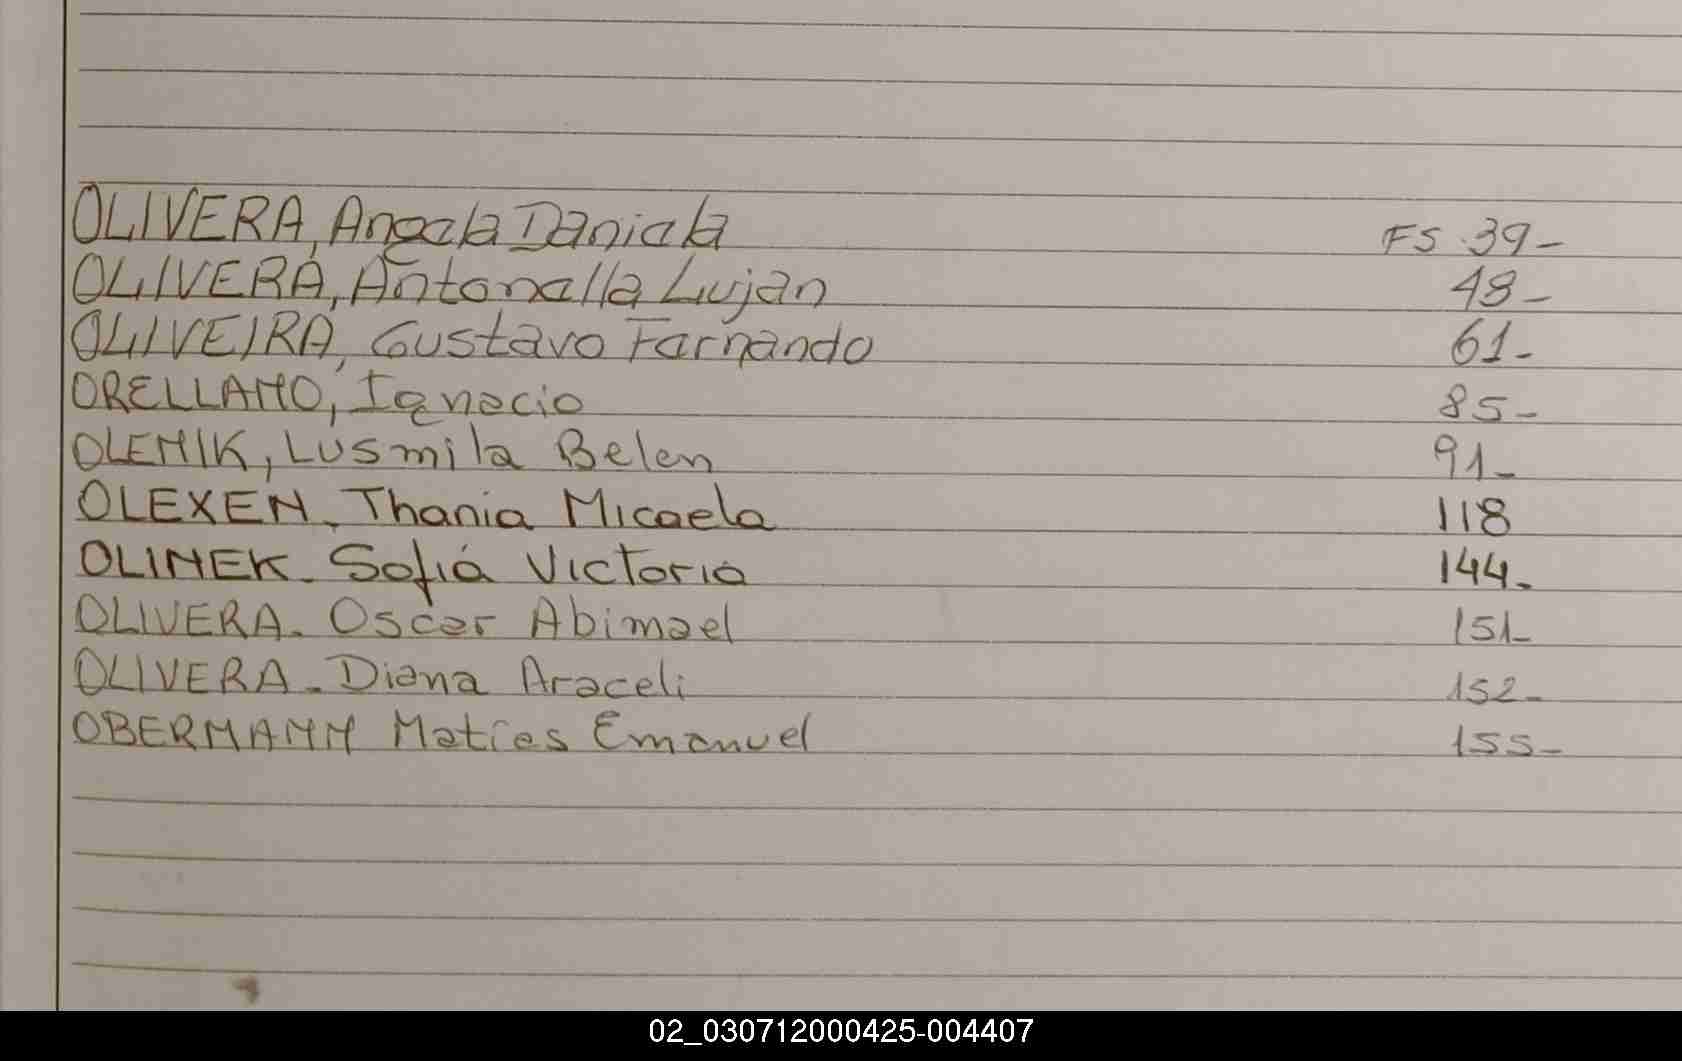 OLIVERA, Angela Daniela FS 39-
OLIVERA, Antonella Lujan 48-
OLIVEIRA, Gustavo Fernando 61-
ORELLANO, Ignacio 85-
OLENIK, Lusmila Belen 91-
OLEXEN, Thania Micaela 118
OLINEK. Sofiá Victoria 144-
OLIVERA. Oscar Abimael 151-
OLIVERA. Diana Araceli 152-
OBERMANN Matías Emanuel 155-
02_030712000425-004407